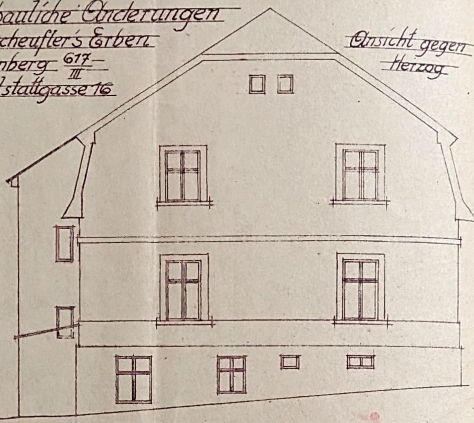 bauliche Änderungen
Scheufler's Erben
nberg 617/III
stattgasse 16
Ansicht gegen
Herzog